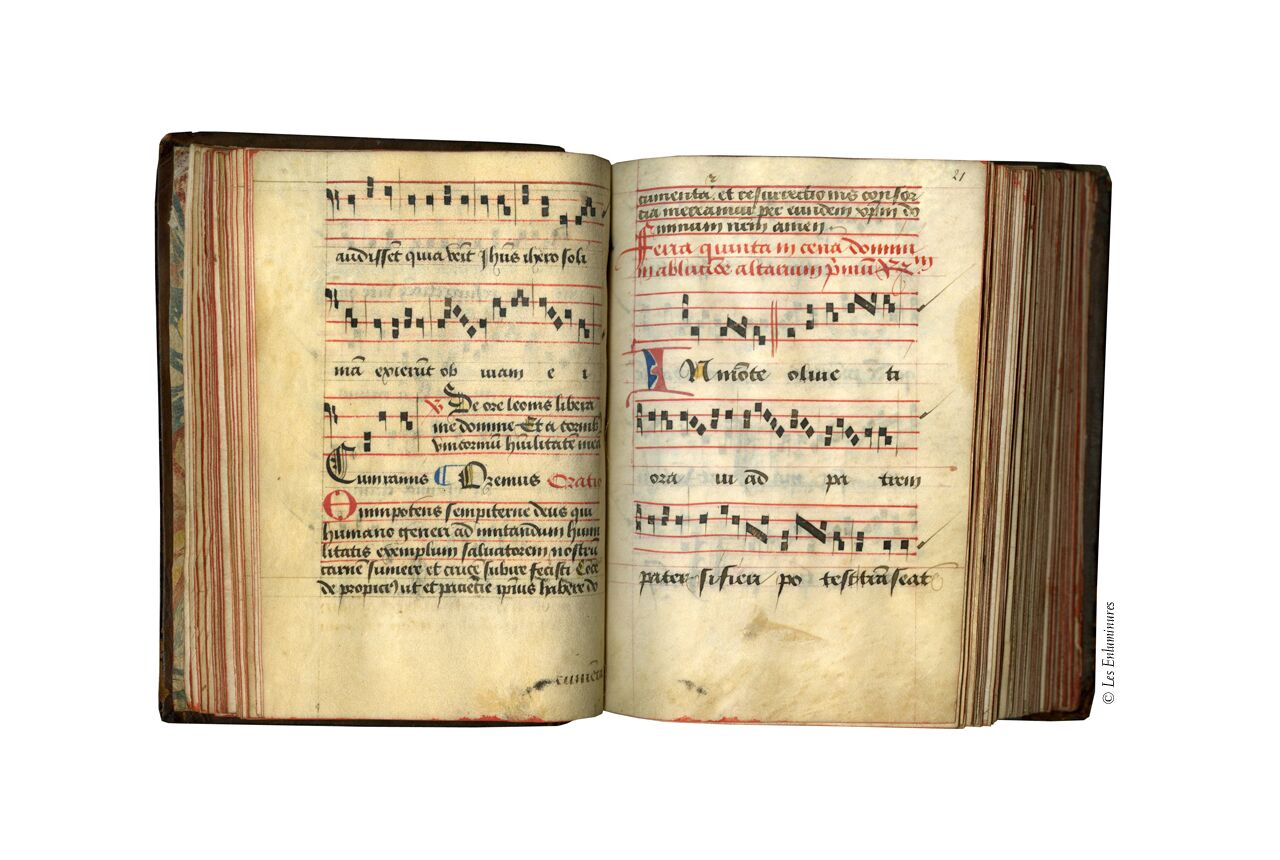 audissēt quia veīt Jhūs ihero soli
mā exierūt ob uiam e i
V De ore leonis libera
me domine Et a cornib
unicornium hūilitatē mea
Cum ramis Oremus Oratio
Omnipotens sempiterne deus qui
humano generi ad imitandum humi
litatis exemplum saluatorem nostrū
carnē sumere et crucē subire fecisti Cōce
de propici ut et pacietie ipsius habere do
cumēta
21
cumenta et resurrectionis consor
cia mereamur per eundem xpm do
minum nrm amen
Feria quinta in cena domini
in ablutiōe altarium p̄mū
IN mōte oliue ti
ora ui ad pa trem
pater si fieri po test trāseat
© Les Enluminures